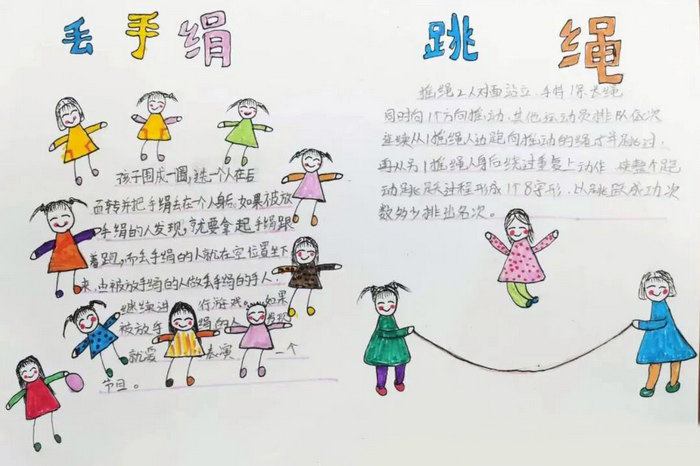 丢手绢
孩子围成一圈,选一个人在后
面转并把手绢丢在一个人身后,如果被放
手绢的人发现,就要拿起手绢跟
着跑,而丢手绢的人就在空位置坐下
来,由被放手绢的人做丢手绢的手人.
继续进行游戏.如果
被放手绢的人没发现
就要表演一个
节目。
跳绳
摇绳2人对面站立,手持1条长绳
同时向1个方向摇动,其他运动员排队依次
连续从1摇绳人边跑向摇动的绳子并跳过,
再从另1摇绳人身后绕过重复上动作,使整个跑
动跳跃过程形成1个8字形,以跳跃成功次
数多少排出名次。